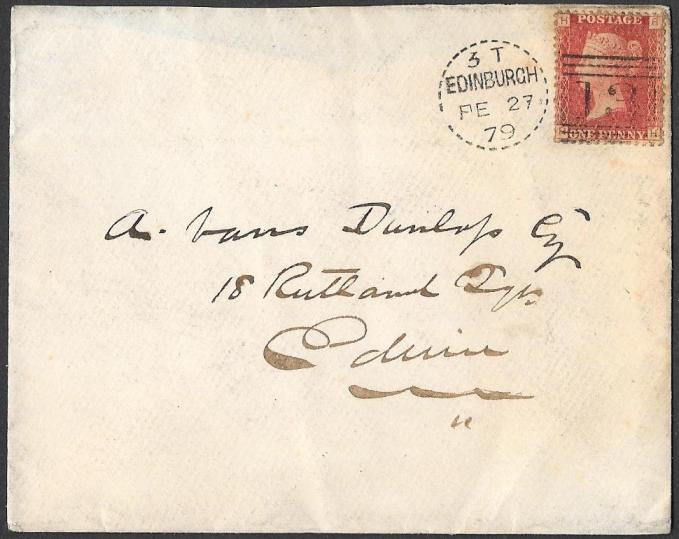 H POSTAGE B
3 T
EDINBURGH
FE 27
79
13
ONE PENNY H
A. Vans Dunlop Esq
18 Rutland Sqr.
Edinr